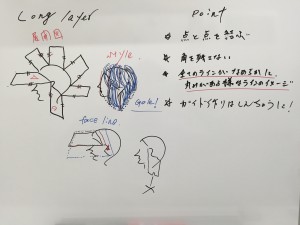 Long layer
展開図
style
Goal!
face line
Point
★ 点と点を結ぶ
★ 角を残さない
★ 全てのラインがなめらかに、
丸みのある様なラインのイメージ
★ ガイド作りはしんちょうに!